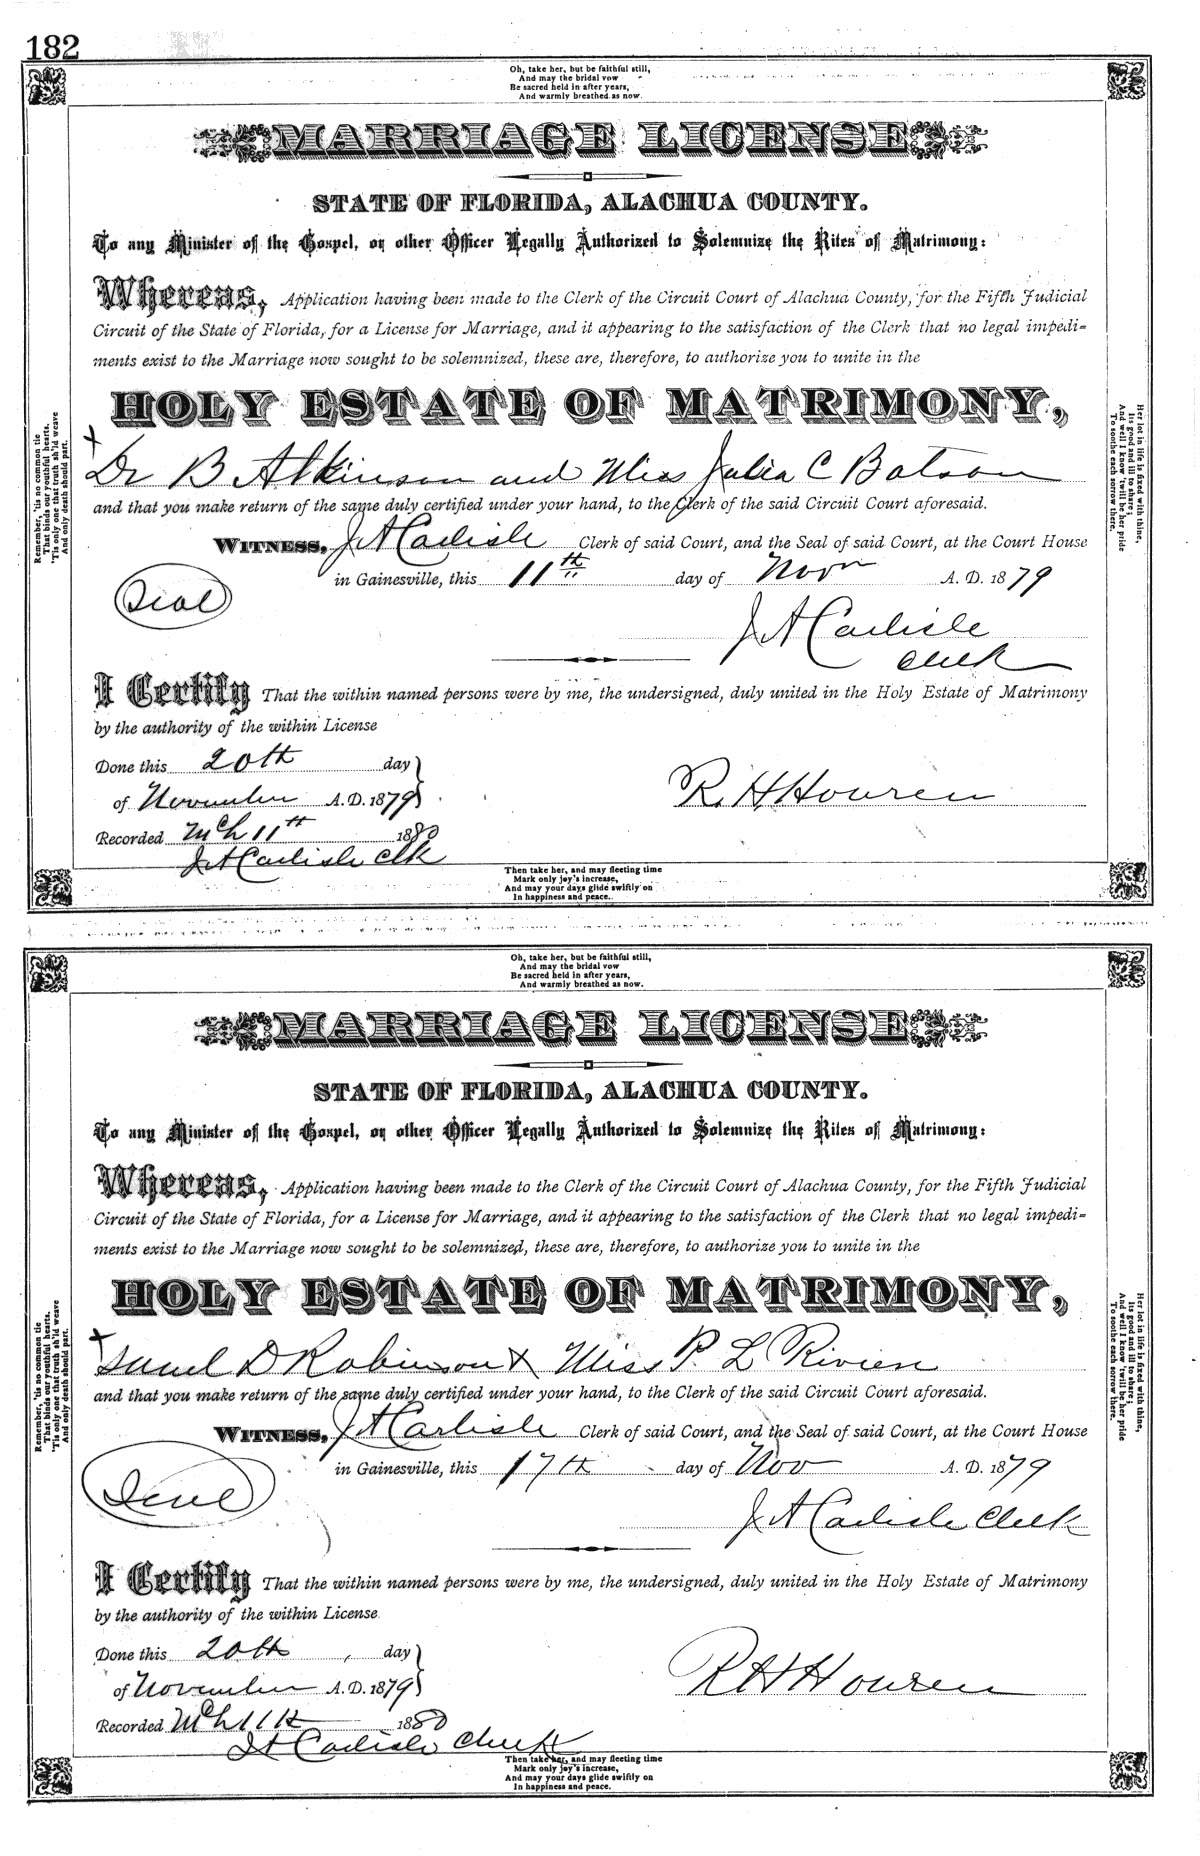 182
Oh, take her, but be faithful still,
And may the bridal vow
Be sacred held in after years,
And warmly breathed as now.
MARRIAGE LICENSE
STATE OF FLORIDA, ALACHUA COUNTY.
To any Minister of the Gospel, or other Officer Legally Authorized to Solemnize the Rites of Matrimony:
Whereas, Application having been made to the Clerk of the Circuit Court of Alachua County, for the Fifth Judicial
Circuit of the State of Florida, for a License for Marriage, and it appearing to the satisfaction of the Clerk that no legal impedi-
ments exist to the Marriage now sought to be solemnized, these are, therefore, to authorize you to unite in the
HOLY ESTATE OF MATRIMONY,
Dr B Atkinson and Miss Julia C Batson
and that you make return of the same duly certified under your hand, to the Clerk of the said Circuit Court aforesaid.
WITNESS, J A Carlisle Clerk of said Court, and the Seal of said Court, at the Court House
in Gainesville, this 11th day of Novr A. D. 1879
Seal
J A Carlisle
Clerk
I Certify That the within named persons were by me, the undersigned, duly united in the Holy Estate of Matrimony
by the authority of the within License
Done this 20th day
of November A.D. 1879
R. H Howren
Recorded Mch 11th 1880
J A Carlisle Clk
Remember, 'tis no common tie
That binds our youthful hearts.
'Tis only one that truth sh'ld weave
And only death should part.
Her lot in life is fixed with thine,
Its good and ill to share;
And well I know 'twill be her pride
To soothe each sorrow there.
Then take her, and may fleeting time
Mark only joy's increase,
And may your days glide swiftly on
In happiness and peace.
Oh, take her, but be faithful still,
And may the bridal vow
Be sacred held in after years,
And warmly breathed as now.
MARRIAGE LICENSE
STATE OF FLORIDA, ALACHUA COUNTY.
To any Minister of the Gospel, or other Officer Legally Authorized to Solemnize the Rites of Matrimony:
Whereas, Application having been made to the Clerk of the Circuit Court of Alachua County, for the Fifth Judicial
Circuit of the State of Florida, for a License for Marriage, and it appearing to the satisfaction of the Clerk that no legal impedi-
ments exist to the Marriage now sought to be solemnized, these are, therefore, to authorize you to unite in the
HOLY ESTATE OF MATRIMONY,
D Robinson & Miss P. L
and that you make return of the same duly certified under your hand, to the Clerk of the said Circuit Court aforesaid.
WITNESS, J A Carlisle Clerk of said Court, and the Seal of said Court, at the Court House
in Gainesville, this 17th day of Nov A. D. 1879
Seal
J A Carlisle Clerk
I Certify That the within named persons were by me, the undersigned, duly united in the Holy Estate of Matrimony
by the authority of the within License
Done this 20th day
of November A.D. 1879
R H Howren
Recorded Mch 11th 1880
J A Carlisle Clerk
Remember, 'tis no common tie
That binds our youthful hearts.
'Tis only one that truth sh'ld weave
And only death should part.
Her lot in life is fixed with thine,
Its good and ill to share;
And well I know 'twill be her pride
To soothe each sorrow there.
Then take her, and may fleeting time
Mark only joy's increase,
And may your days glide swiftly on
In happiness and peace.